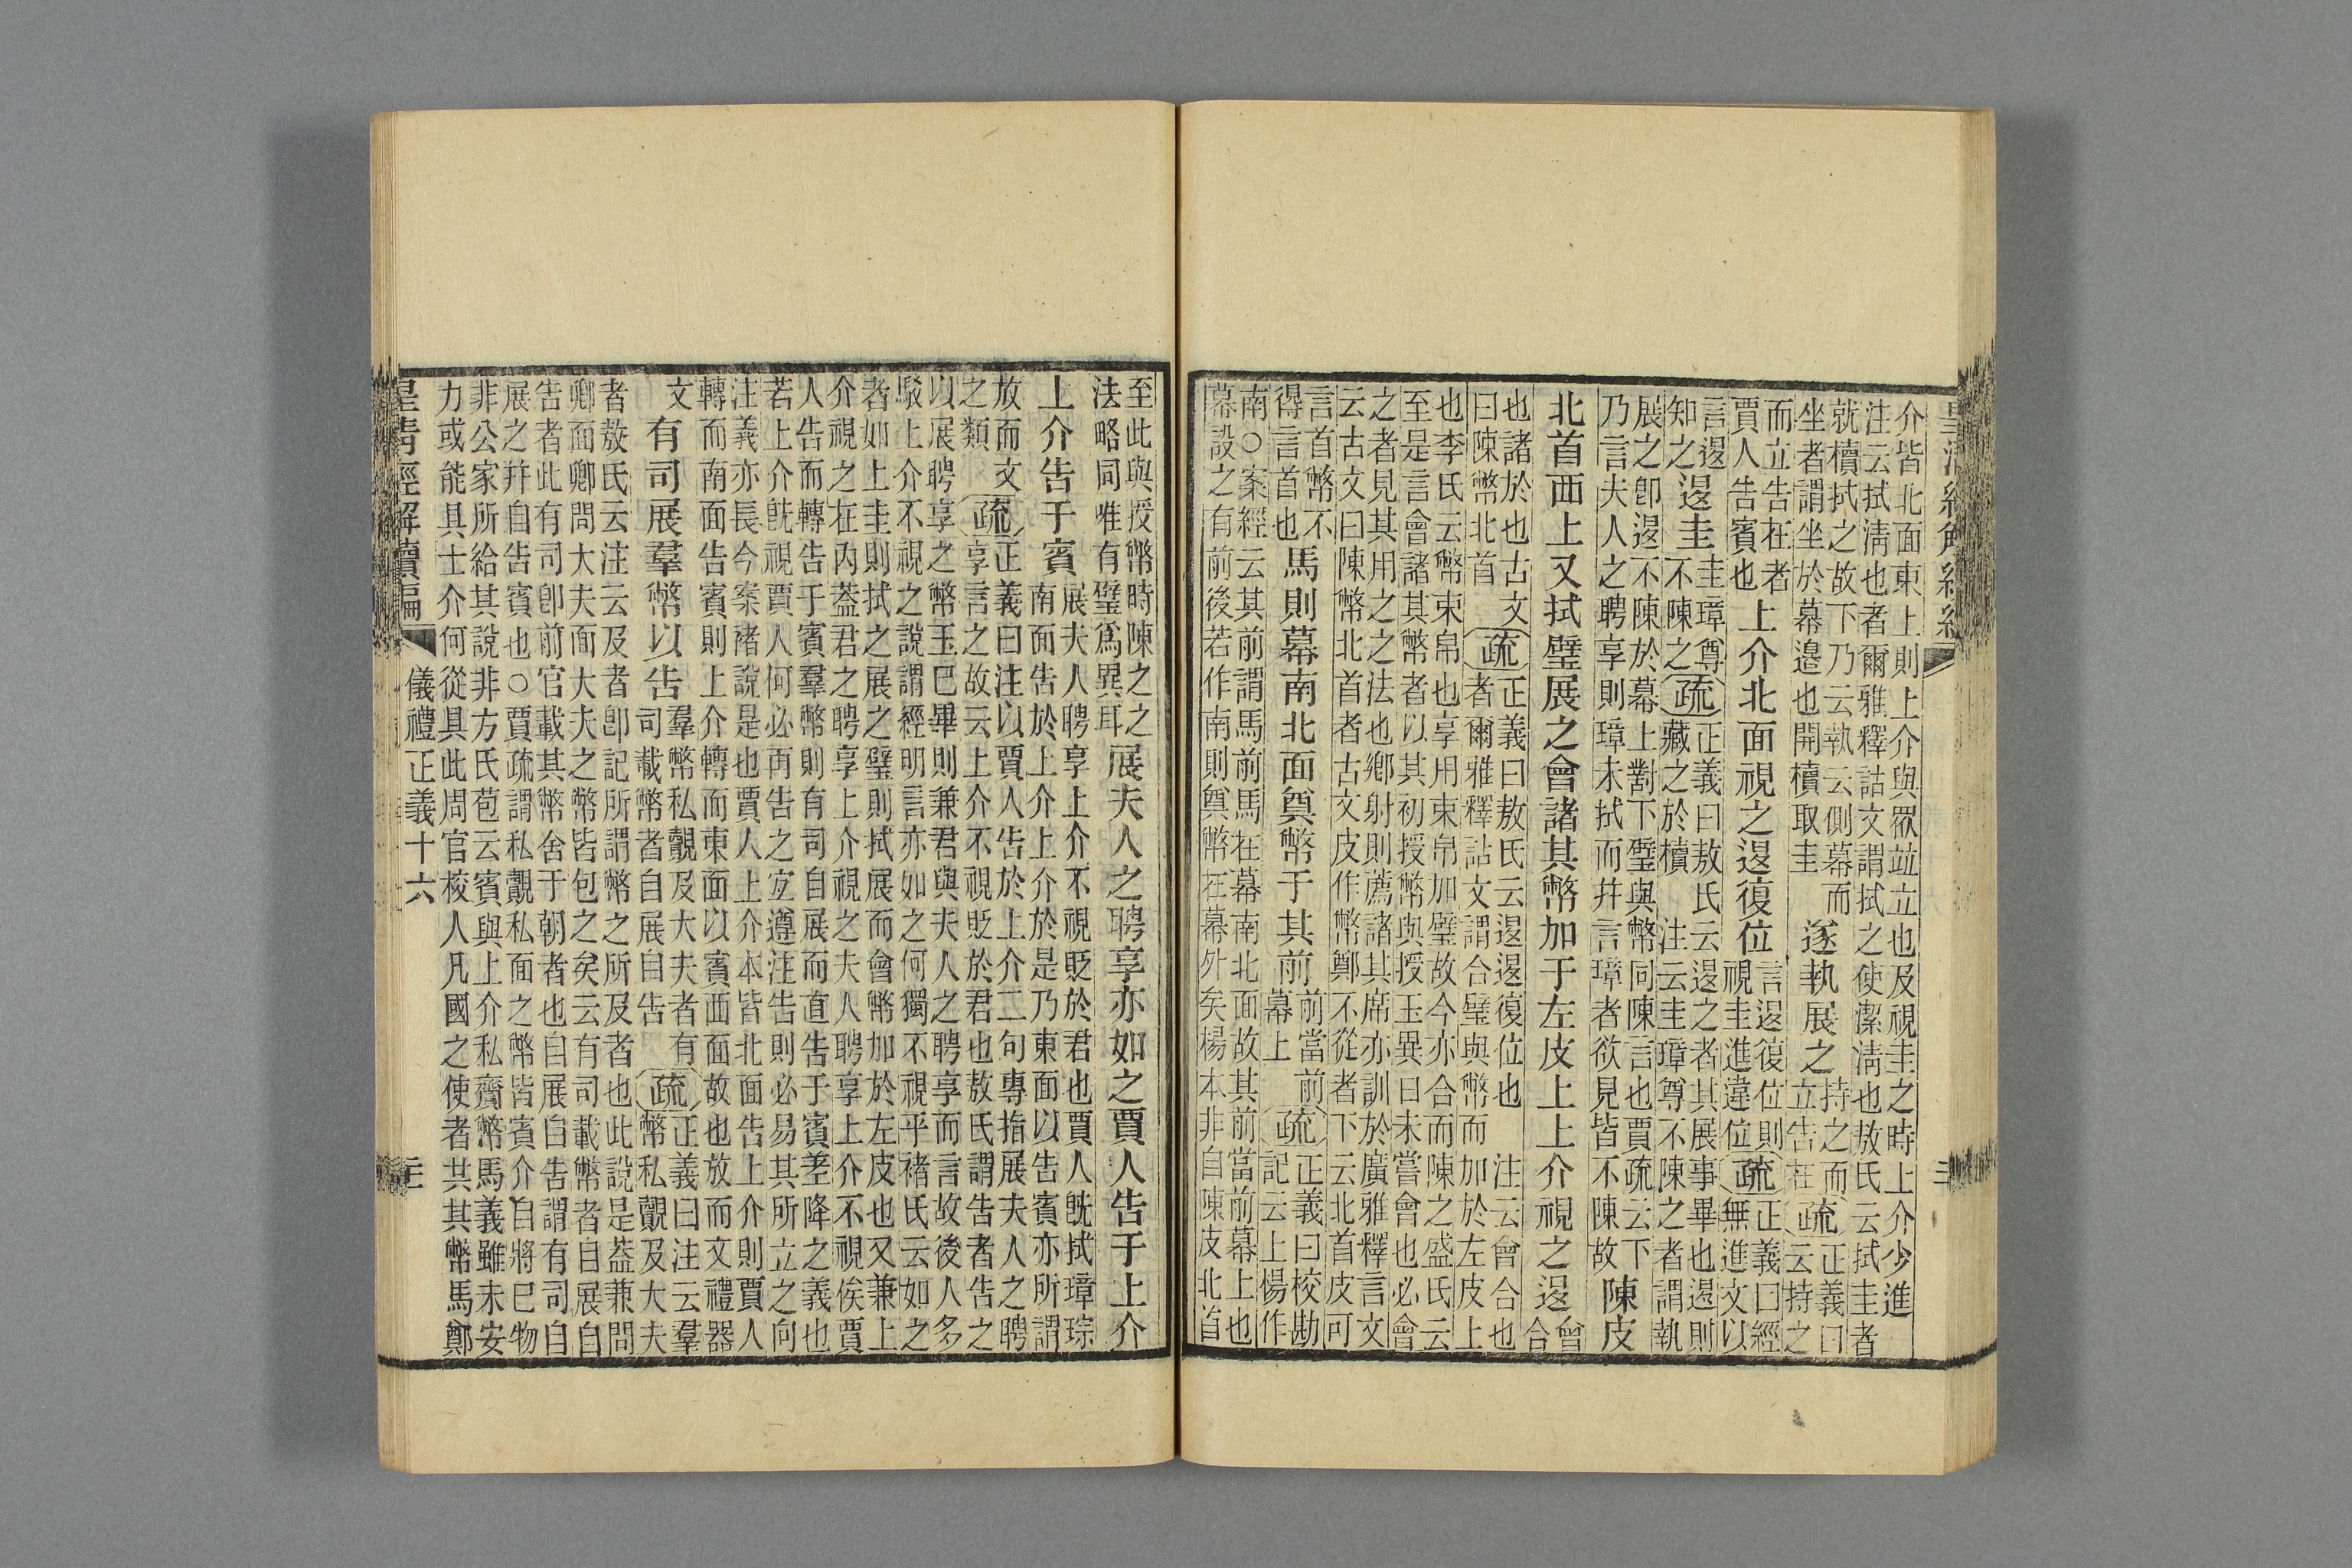 介皆北面東上則上介與眾竝立也及視圭之時上介少進注云拭淸也者爾雅釋詁文謂拭之使潔淸也敖氏云拭圭者
就櫝拭之故下乃云執云側幕而坐者謂坐於幕邊也開櫝取圭遂執展之持之而立告在疏正義曰云持之
而立告在者賈人告賓也上介北面視之退復位言退復位則視圭進違位疏正義曰經無進文以
言退知之退圭圭璋尊不陳之疏正義曰敖氏云退之者其展事畢也退則藏之於櫝 注云圭璋尊不陳之者謂執
展之卽退不陳於幕上對下璧與幣同陳言也賈疏云下乃言夫人之聘享則璋未拭而幷言璋者欲見皆不陳故陳皮
北首西上又拭璧展之會諸其幣加于左皮上上介視之退會合
也諸於也古文曰陳幣北首疏正義曰敖氏云退退復位也 注云會合也者爾雅釋詁文謂合璧與幣而加於左皮上
也李氏云幣束帛也享用束帛加璧故今亦合而陳之盛氏云至是言會諸其幣者以其初授幣與授玉異曰未嘗會也必會
之者見其用之之法也鄉射則薦諸其席亦訓於廣雅釋言文云古文曰陳幣北首者古文皮作幣鄭不從者下云北首皮可
言首幣不得言首也馬則幕南北面奠幣于其前前當前幕上疏正義曰校勘記云上楊作
南○案經云其前謂馬前馬在幕南北面故其前當前幕上也幕設之有前後若作南則奠幣在幕外矣楊本非自陳皮北首
至此與授幣時陳之之法略同唯有璧爲異耳展夫人之聘享亦如之賈人告于上介
上介告于賓展夫人聘享上介不視貶於君也賈人旣拭璋琮南面告於上介上介於是乃東面以告賓亦所謂
放而文之類疏正義曰注以賈人告於上介二句專指展夫人之聘享言之故云上介不視貶於君也敖氏謂告者告之
以展聘享之幣玉巳畢則兼君與夫人之聘享而言故後人多駁上介不視之說謂經明言亦如之何獨不視乎褚氏云如之
者如上圭則拭之展之璧則拭展而會幣加於左皮也又兼上介視之在內葢君之聘享上介視之夫人聘享上介不視俟賈
人告而轉告于賓羣幣則有司自展而直告于賓差降之義也若上介旣視賈人何必再告之宐遵注告則必易其所立之向
注義亦長今案褚說是也賈人上介本皆北面告上介則賈人轉而南面告賓則上介轉而東面以賓西面故也放而文禮器
文有司展羣幣以告羣幣私覿及大夫者有司載幣者自展自告疏正義曰注云羣幣私覿及大夫
者敖氏云注云及者卽記所謂幣之所及者也此說是葢兼問卿面卿問大夫面大夫之幣皆包之矣云有司載幣者自展自
告者此有司卽前官載其幣舍于朝者也自展自告謂有司自展之幷自告賓也○賈疏謂私覿私面之幣皆賓介自將巳物
非公家所給其說非方氏苞云賓與上介私齎幣馬義雖未安力或能具士介何從具此周官校人凡國之使者共其幣馬鄭
儀禮正義十六